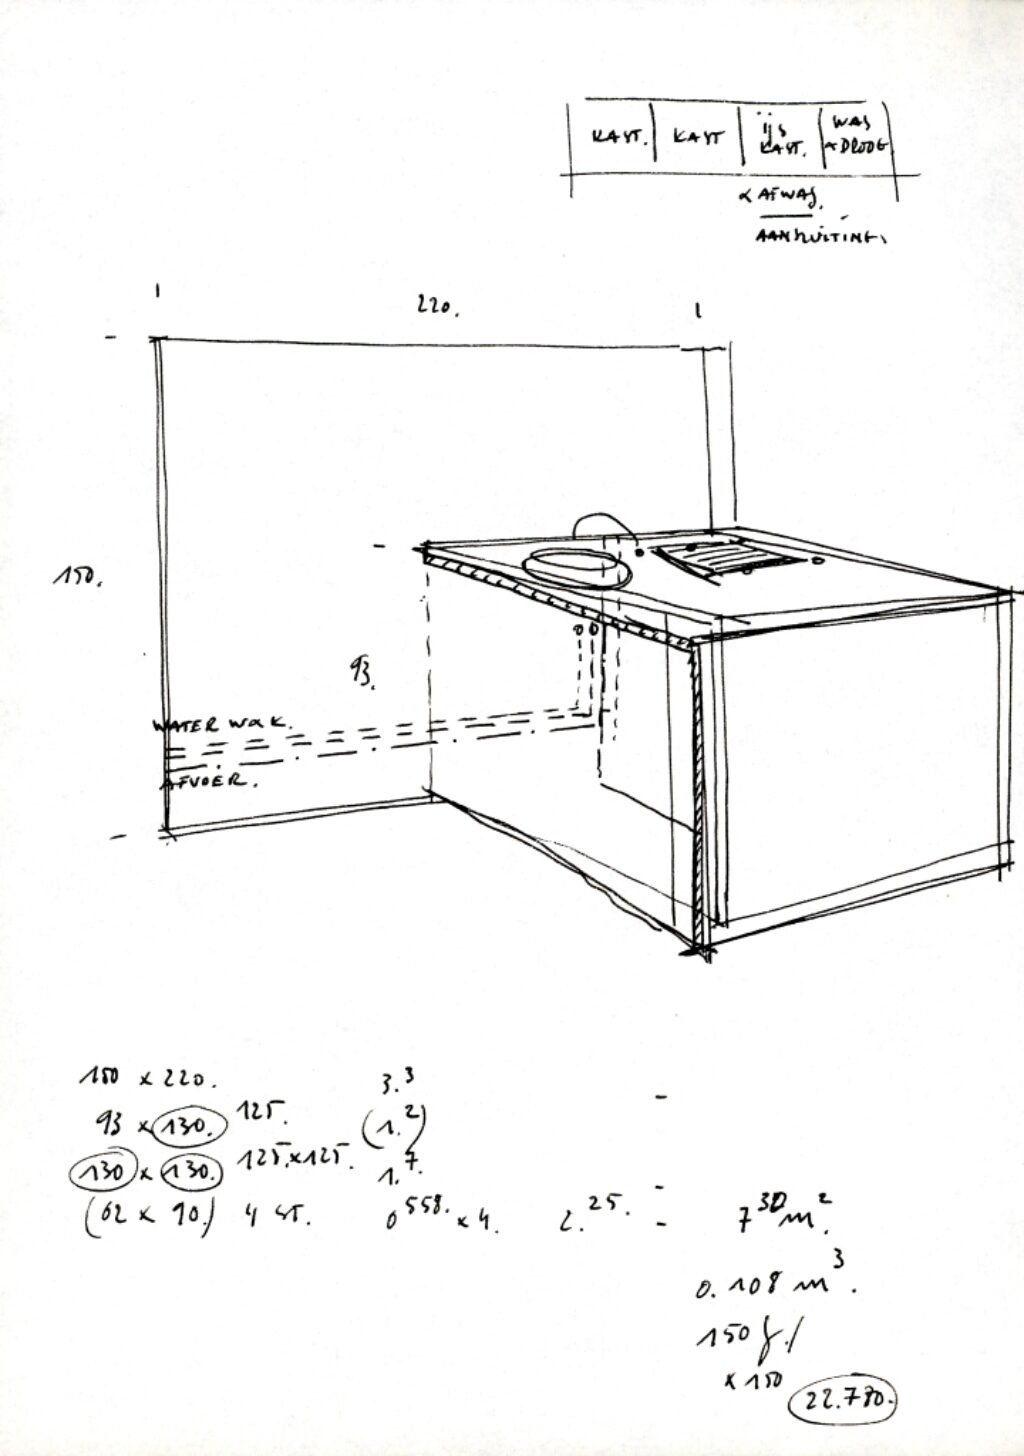 KAST. KAST IJS KAST. WAS & DROOG
& AFWAS.
AANSLUITING.
220.
150.
93.
WATER W&K.
AFVOER.
150 x 220. 3.3
93 x 130. 125. (1.2)
130 x 130. 125.x125. 1.7.
(62 x 90.) 4 ST. 0558. x 4. 2.25. 7 30 m2.
0.108 m3.
150
x 150
22.780.